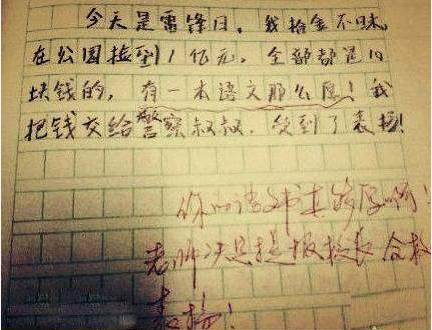 今天是雷锋日,我拾金不昧,
在公园捡到1亿元,全部都是10
块钱的,有一本语文那么厚!我
把钱交给警察叔叔,受到了表扬!
你的语文书真够厚啊!
老师决定提报校长 全校
表扬!